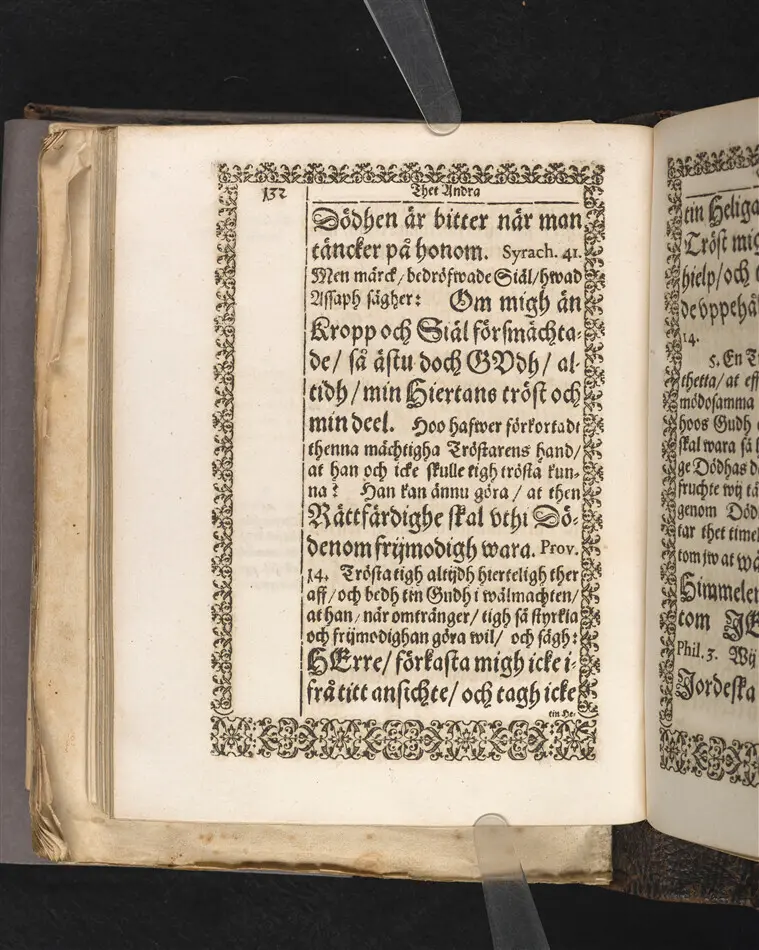 132
Thet Andra
Dödhen är bitter när man
täncker på honom. Syrach. 41.
Men märck/ bedröfwade Siäl/ hwad
Assaph sägher: Om migh än
Kropp och Siäl försmächta-
de/ så ästu doch GVdh/ al-
tidh/ min Hiertans tröst och
min deel. Hoo hafwer förkortadt
thenna mächtigha Tröstarens hand/
at han och icke skulle tigh trösta kun-
na? Han kan ännu göra/ at then
Rättfärdighe skal vthi Dö-
denom frijmodigh wara. Prov.
14. Trösta tigh altijdh hierteligh ther
aff/ och bedh tin Gudh i wälmachten/
at han/ när omtränger/ tigh så styrkia
och frijmodighan göra wil/ och sägh:
HErre/ förkasta migh icke i-
frå titt ansichte/ och tagh icke
tin He-
tin Heliga
Tröst mig
hielp/ och
de vppehå
14.
5. En
thetta/ at eff
mödosamma
hoos Gudh
skal wara så
ge Dödhas
fruchte wij tå
genom Död
tar thet timel
tom jw at wå
Himmelen
tom JE
Phil. 3. Wij
Jordeska